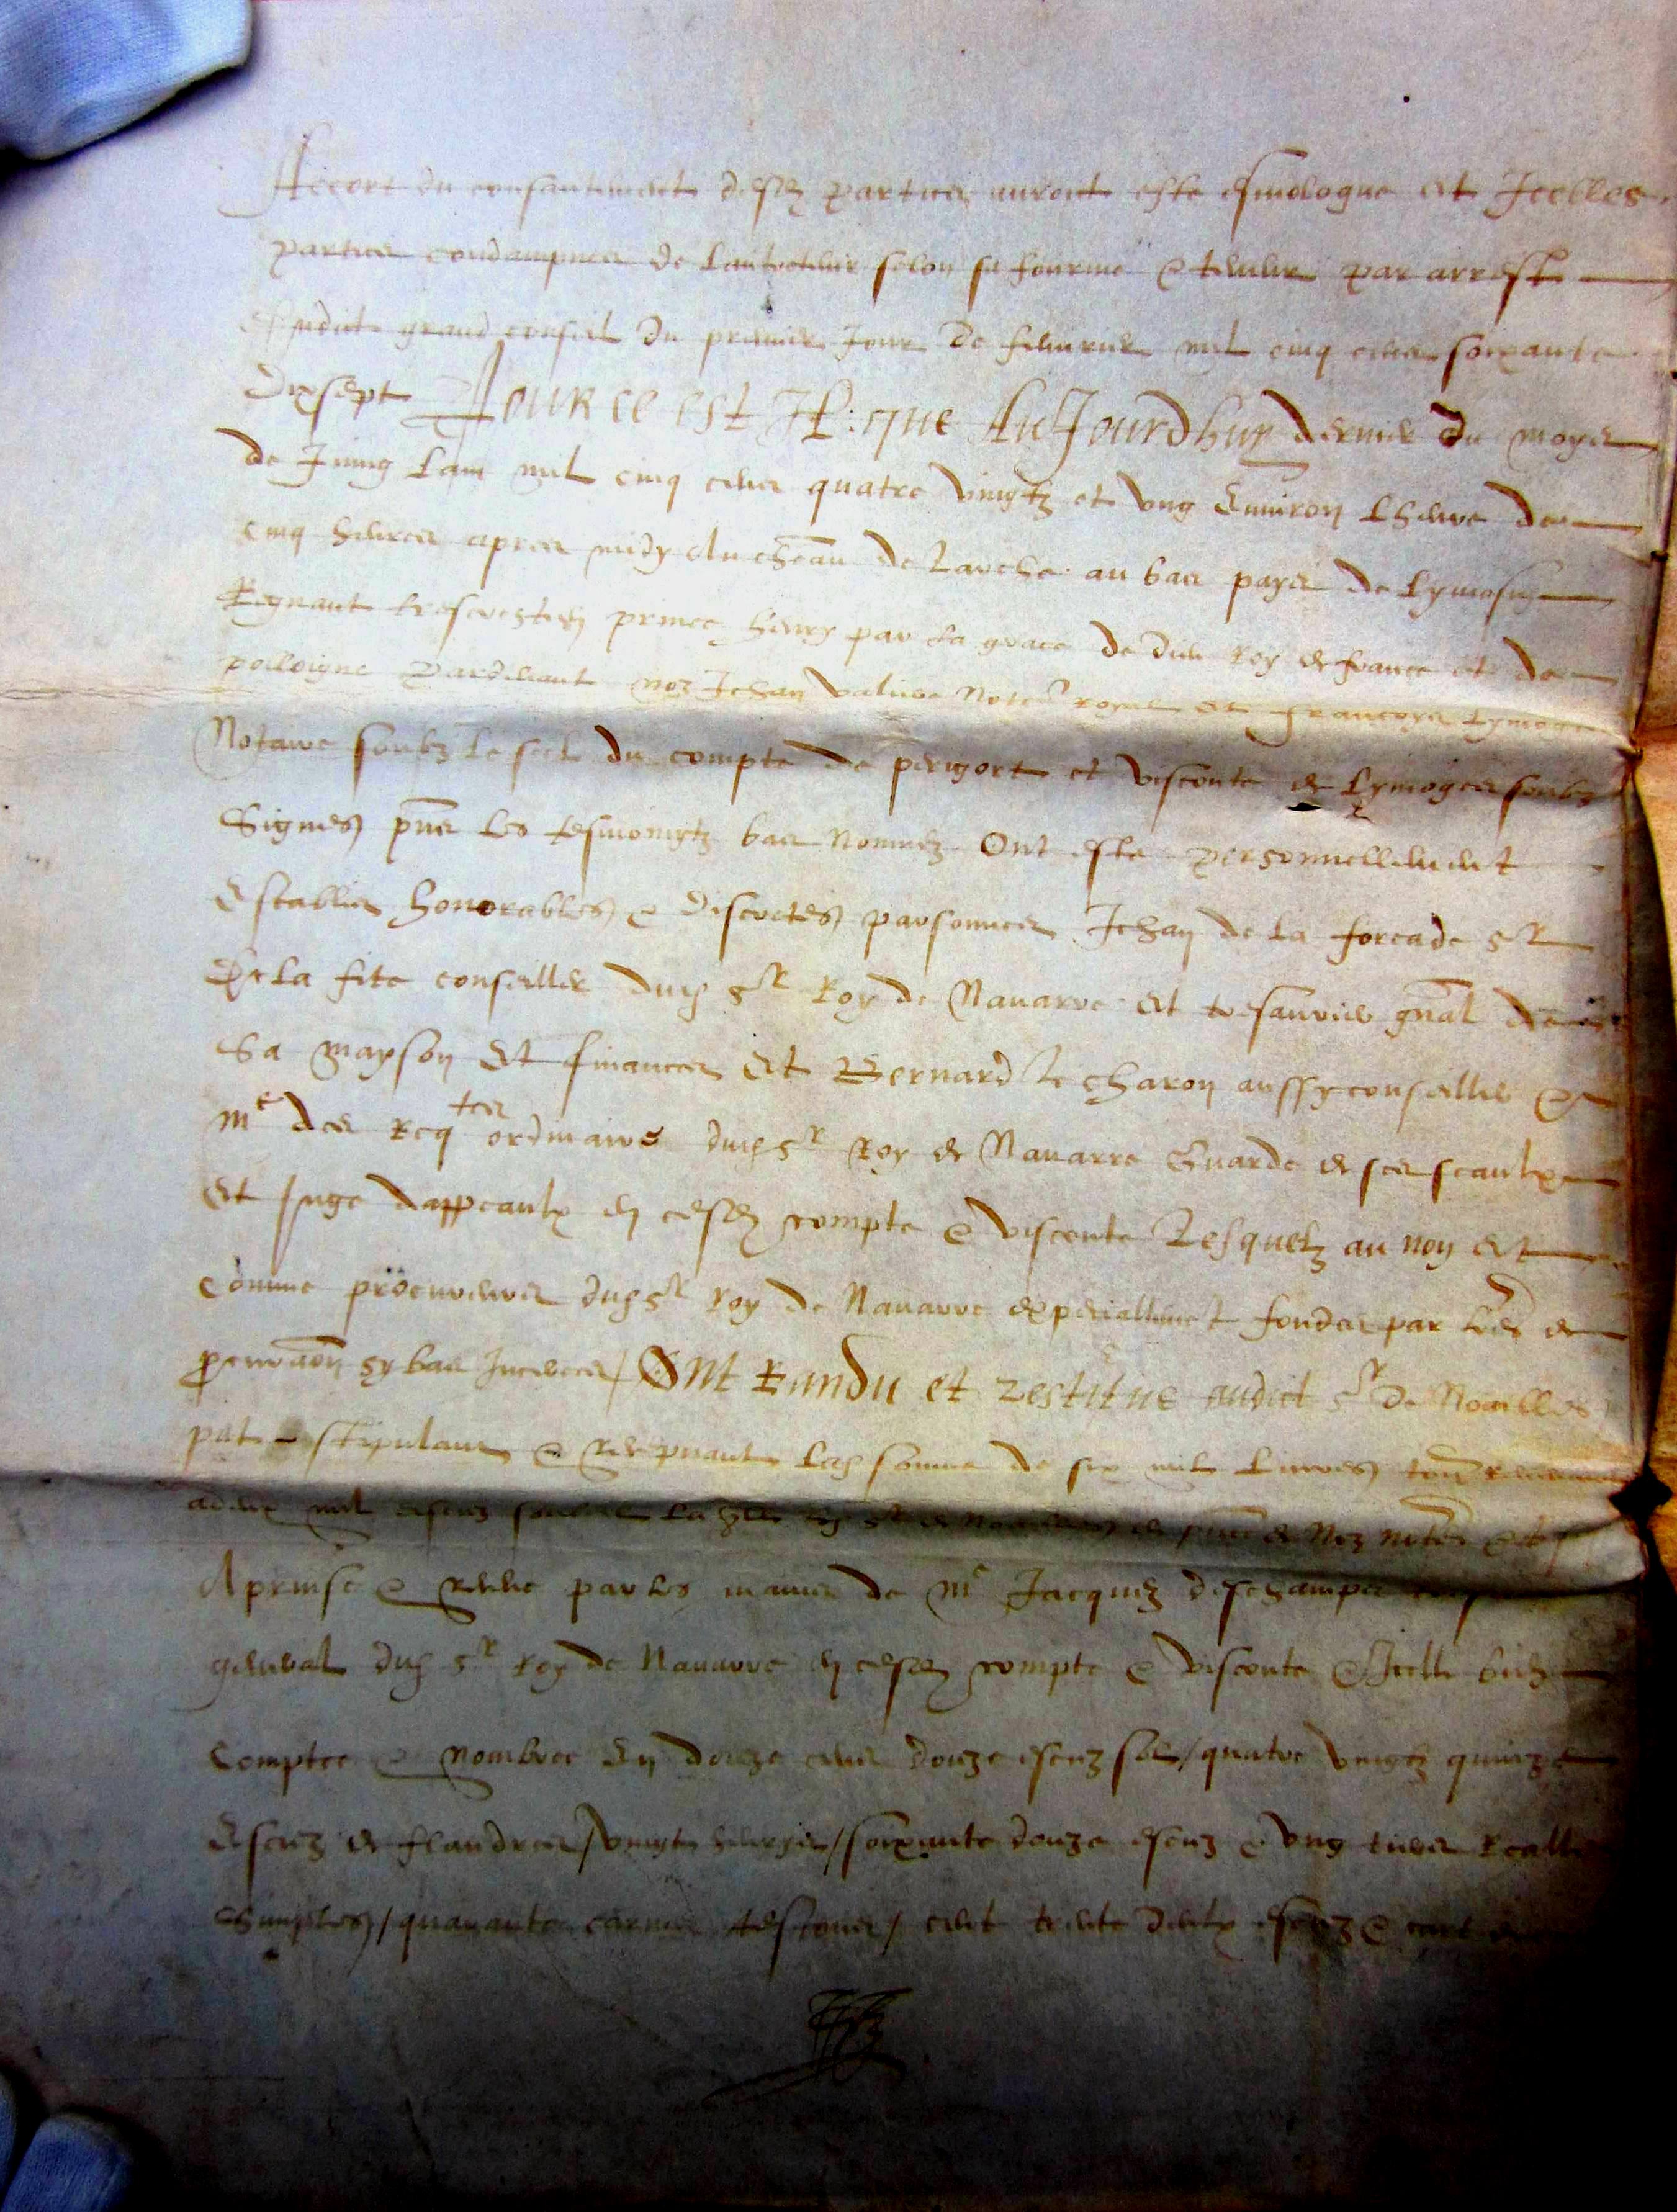 Accort du consantement desd parties auroit este esmologue et Icelles
parties condampnees de Lantretenir selon sa fourme & teneur par arrest
dudict grand conseil du premier Jour de febvrier mil cinq cens soixante
dixsept Pour ce est Il : que AuJourdhuy dernier du moys
de Juing Lan mil cinq cens quatre vingtz et ung Environ Lheure de
cinq heures apres midy Au cheau de Larche au bas pays de Lymosin
Regnant trescrestien prince henry par La grace de dieu Roy de france et de
polloigne Pardevant noz Jehan Note royal et francoys
Notaire soubz le seel du compte de perigort et visconte de Lymoges soubz
Signes pnes les tesmoingtz bas Nommez Ont este personnellement
Establies honorables & discretes parsonnes Jehan de La forcade Sr
De la fite conseiller dud Sr Roy de Navarre et tresaurier gnal de
Sa mayson et finances et Bernard le charon aussy conseiller &
me des Reqtes ordinaire dud Sr Roy de Navarre Guarde de ses seaulx
et Juge dappeaulx en cesd compte & visconte Lesquelz au nom et
Comme procureurs dud Sr Roy de Navarre expeciallement fondes par Lres de
procuraon sy bas Inceree / Ont Randu et restitue audict Sr De Noailles
pnt stipulant & acceptant Lad somme de six mil Livres tour
a deux mil escuz Sr de Noailles de Noz notes et
A prinse & receue par les mains de me Jacques deschamps
general dud Sr Roy de Navarre en cesd compte & visconte & Icelle bien
Comptee & Nombree En douze cens douze escuz sol / quatre vingtz quinze
Escuz de flandres / vingt / soixante douze escuz & ung tiers Realles
Simples / quarante testons / cent trente deulx escuz &